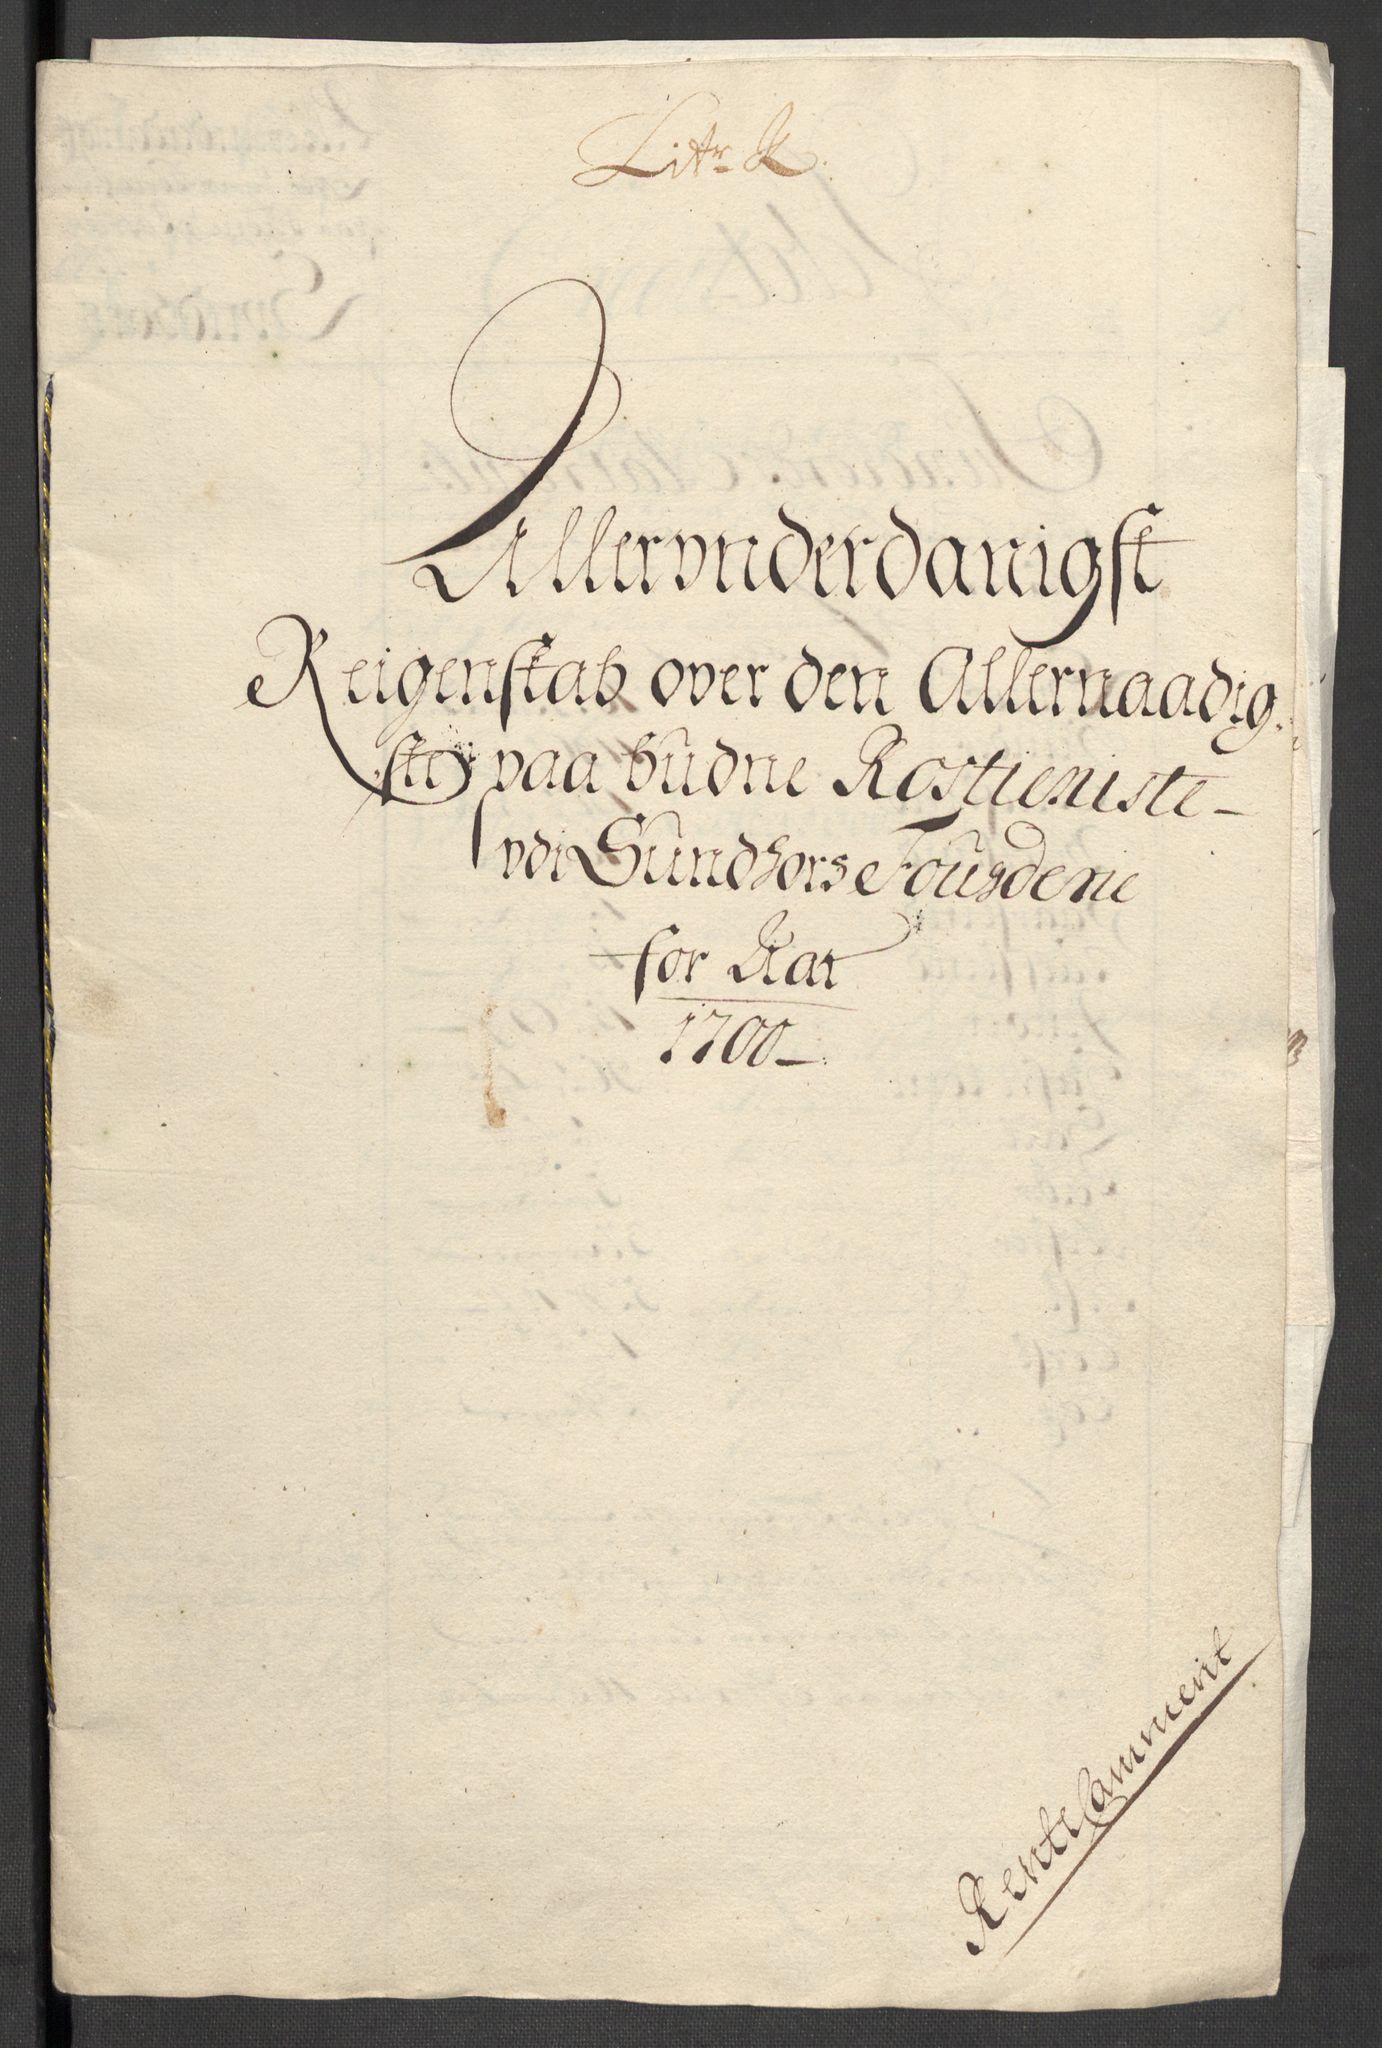 Litr K.
Allervnderdanigst
Reigenskab over den Allernaadig-
ste paa budne Rostieniste
vdi Sundhors Fougderie
for Aar
1700
RenteCamment